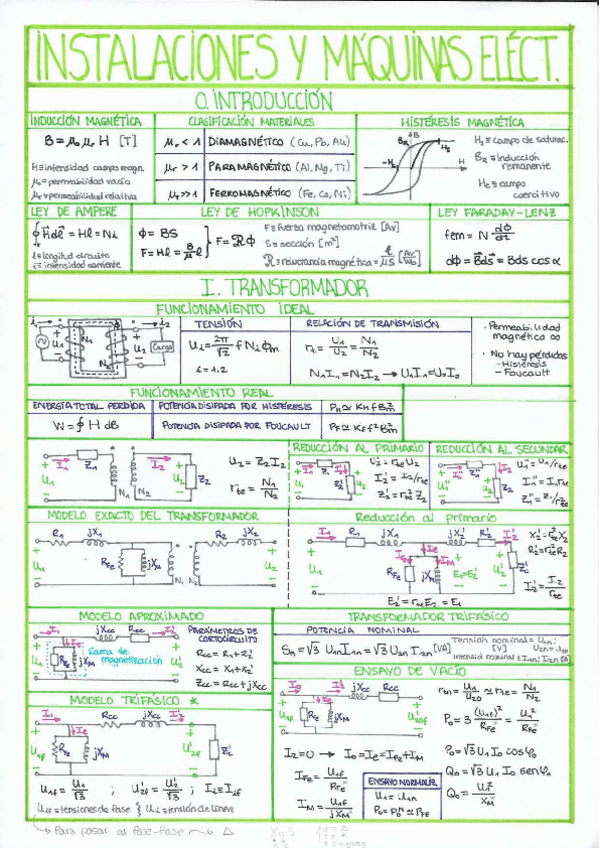 INSTALACIONES Y MÁQUINAS ELÉCT.
0. INTRODUCCIÓN
INDUCCIÓN MAGNÉTICA
B = μ₀ μr H [T]
H = intensidad campo magn.
μ₀ = permeabilidad vacío
μr = permeabilidad relativa
CLASIFICACIÓN MATERIALES
μr < 1 DIAMAGNÉTICO (Cu, Pb, Au)
μr > 1 PARAMAGNÉTICO (Al, Mg, Ti)
μr >> 1 FERROMAGNÉTICO (Fe, Co, Ni)
HISTÉRESIS MAGNÉTICA
B
BR
Hs
-Hc
H
Hs = campo de saturac.
BR = inducción remanente
Hc = campo coercitivo
LEY DE AMPERE
∮ H dl = Hl = Ni
l = longitud circuito
i = intensidad corriente
LEY DE HOPKINSON
ϕ = BS
F = Hl = B/μ l
F = ℛϕ
F = fuerza magnetomotriz [Av]
S = sección [m²]
ℛ = reluctancia magnética = l/μS [Av/Wb]
LEY FARADAY-LENZ
fem = N dϕ/dt
dϕ = B dS = B ds cos α
I. TRANSFORMADOR
FUNCIONAMIENTO IDEAL
i₁
U₁
N₁
N₂
ϕ
i₂
U₂
Carga
TENSIÓN
Ui = 2π/√2 f Ni ϕm
i = 1,2
RELACIÓN DE TRANSMISIÓN
rt = U₁/U₂ = N₁/N₂
N₁I₁ = N₂I₂ → U₁I₁ = U₂I₂
· Permeabilidad magnética ∞
· No hay pérdidas
- Histéresis
- Foucault
FUNCIONAMIENTO REAL
ENERGÍA TOTAL PERDIDA
W = ∮ H dB
POTENCIA DISIPADA POR HISTÉRESIS
POTENCIA DISIPADA POR FOUCAULT
I₁ Z₁ I₂
U₁ N₁ N₂ U₂ Z₂
U₂ = Z₂I₂
rte = N₁/N₂
REDUCCIÓN AL PRIMARIO
U₂' = rte U₂
I₂' = I₂/rte
Z₂' = rte² Z₂
REDUCCIÓN AL SECUNDAR
U₁'' = U₁/rte
I₁'' = I₁rte
MODELO EXACTO DEL TRANSFORMADOR
R₁ jX₁ R₂ jX₂
U₁ RFe jXM N₁ N₂ U₂
Reducción al primario
I₁ R₁ jX₁ jX₂' R₂' I₂'
U₁ RFe jXM E₁=E₂' U₂'
X₂' = rte²X₂
R₂' = rte²R₂
I₂' = I₂/rte
E₂' = rteE₂ = E₁
MODELO APROXIMADO
jXcc Rcc
Rama de magnetización
PARÁMETROS DE CORTOCIRCUITO
Rcc = R₁+R₂'
Xcc = X₁+X₂'
Zcc = Rcc + jXcc
TRANSFORMADOR TRIFÁSICO
POTENCIA NOMINAL
Sn = √3 U₁n I₁n = √3 U₂n I₂n [VA]
MODELO TRIFÁSICO *
I₁ Rcc jXcc I₂'
U₁f RFe jXM U₂f' Z₂'
U₁f = U₁/√3 ; U₂f' = U₂'/√3 ; I₁ = I₁f
Uif = tensiones de fase } Ui = tensión de línea
→ Para pasar al fase-fase
ENSAYO DE VACÍO
I₀ jXcc Rcc
U₁f RFe jXM
I₂ = 0 → I₀ = Ie = IFe + IM
IFe = U₁f/RFe
IM = U₁f/jXM
ENSAYO NORMALIZ.
U₁ = U₁n
rtn = U₁n/U₂₀ ≃ rte = N₁/N₂
P₀ = 3 (U₁f)²/RFe = U₁²/RFe
P₀ = √3 U₁ I₀ cos φ₀
Q₀ = √3 U₁ I₀ sen φ₀
Q₀ = U₁²/XM